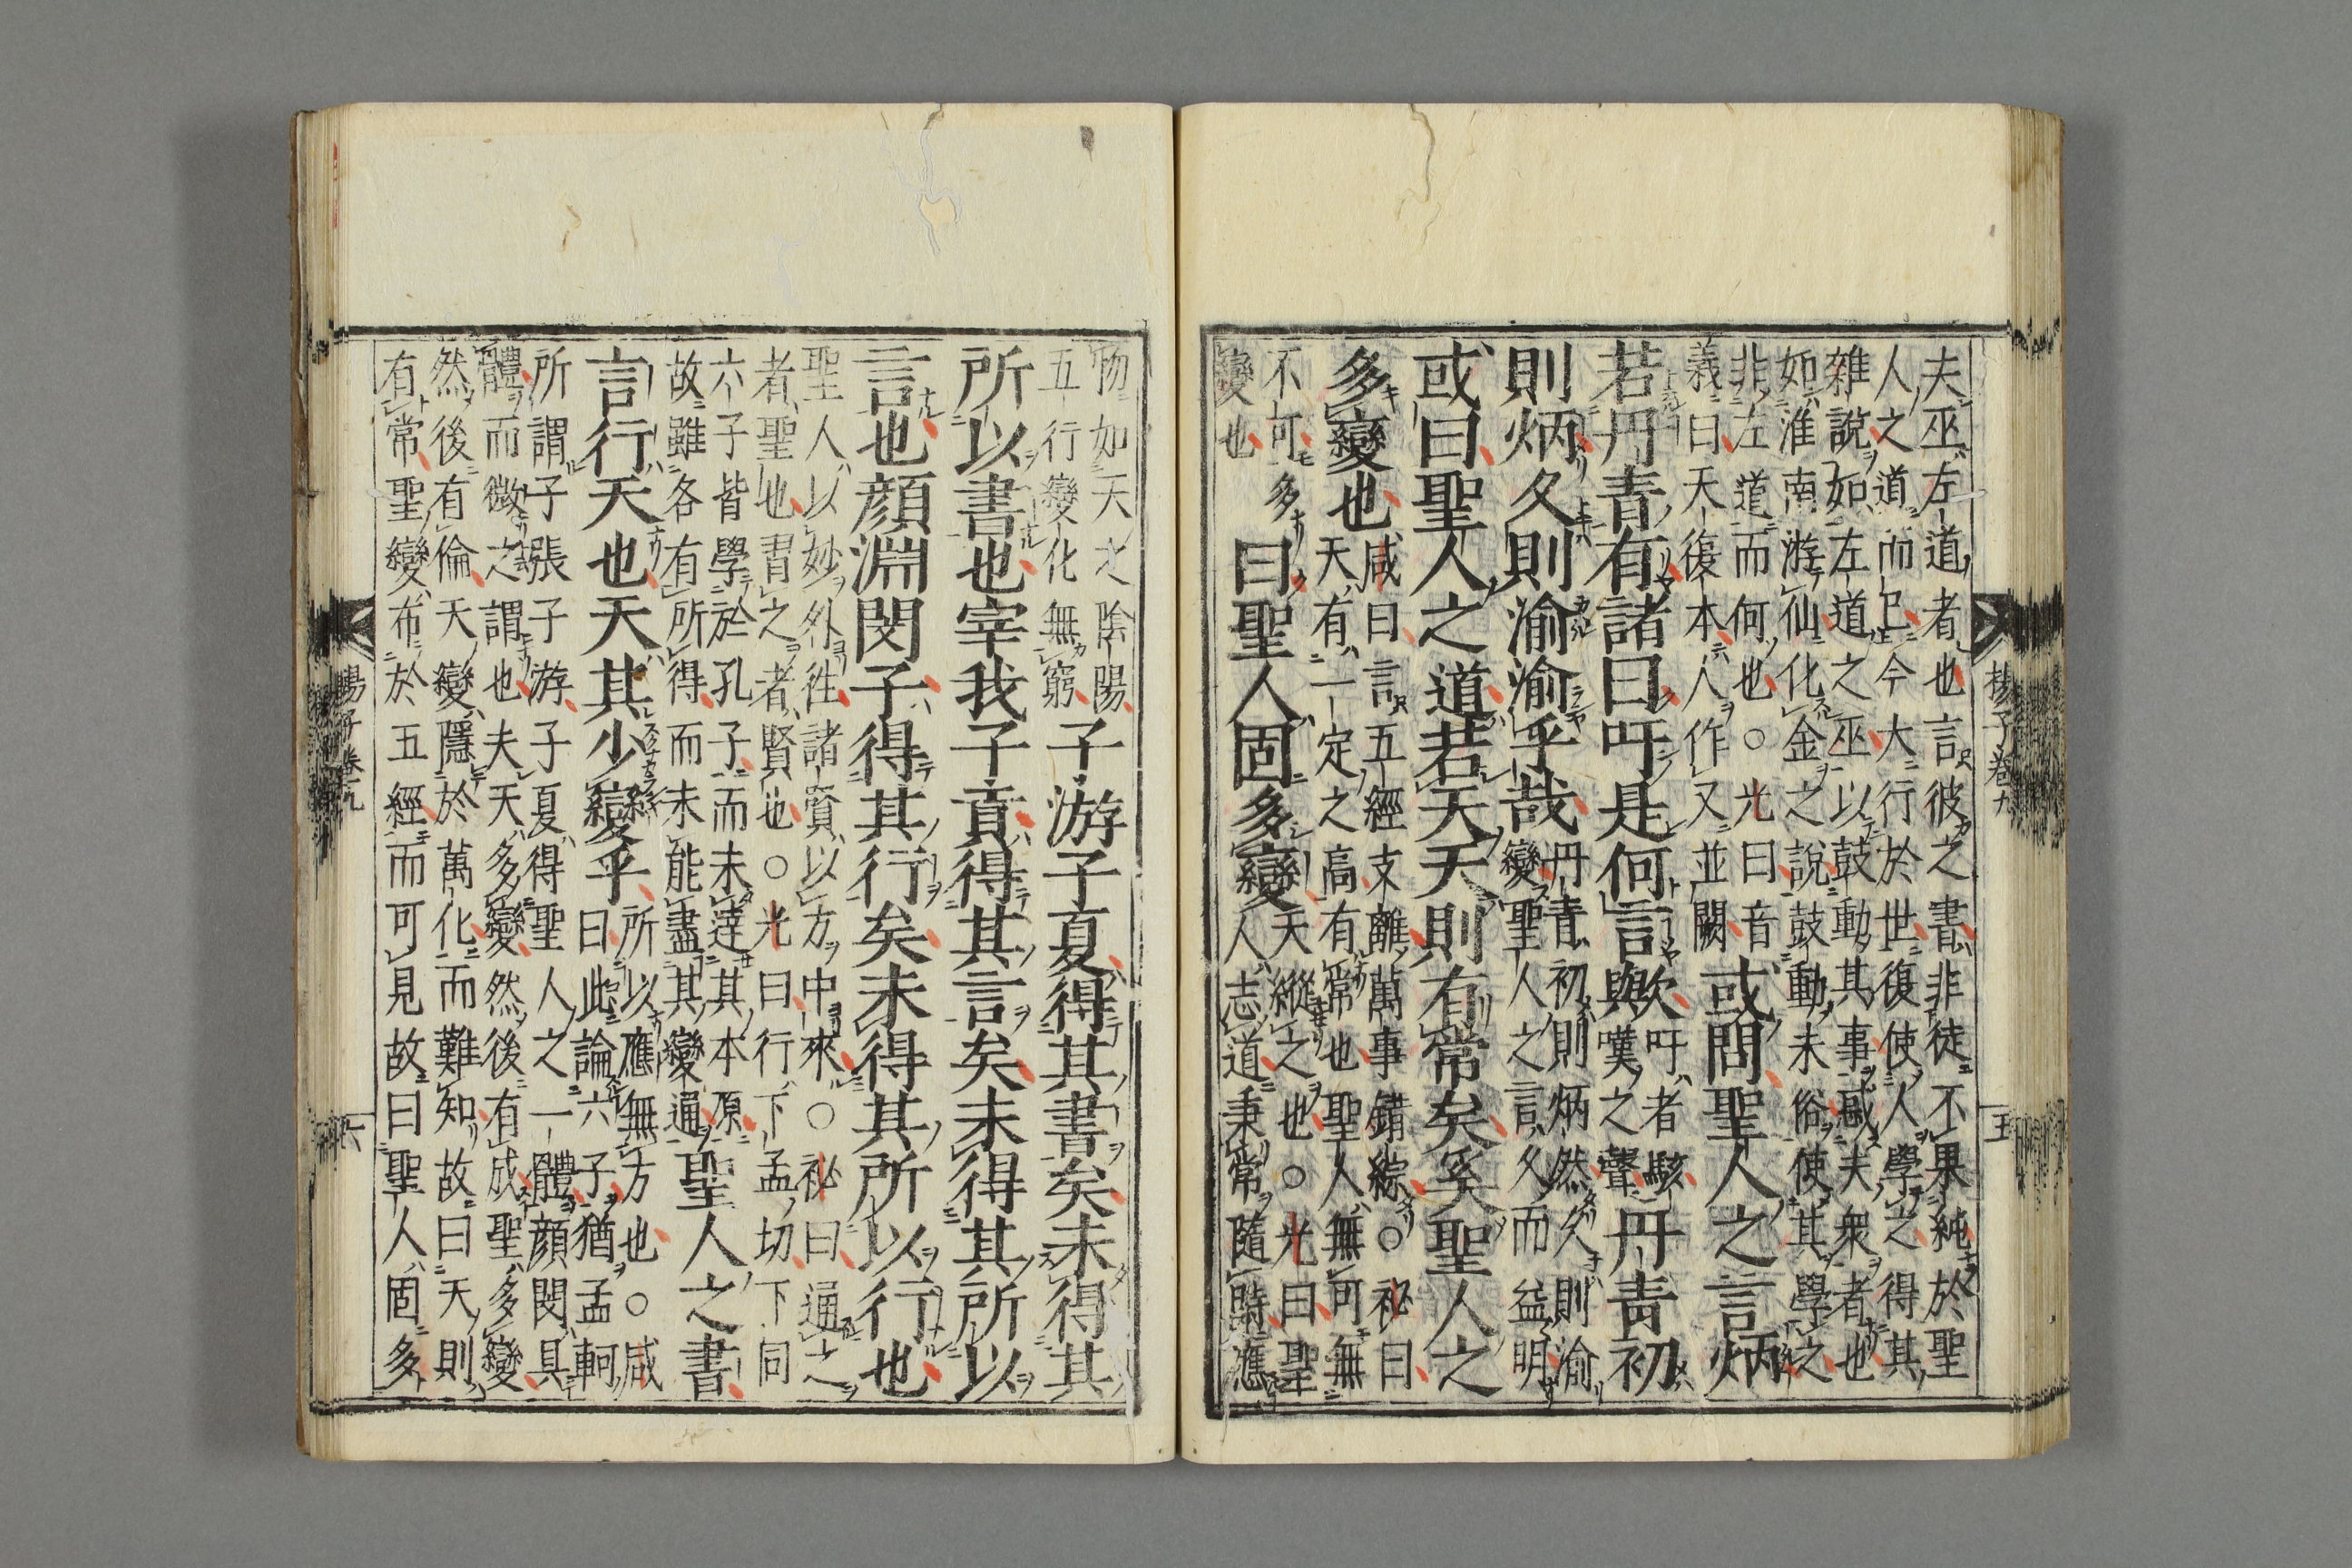 楊子卷九
五
夫巫左道者也言彼之書非徒不果純於聖
人之道而已今大行於世復使人學之得其
雜說如左道之巫以鼓動其事惑夫衆者也
如淮南游仙化金之說鼓動未俗使其學之
非左道而何也○光曰音
義曰天復本人作又並闕
或問聖人之言炳
若丹青有諸曰吁是何言歟
吁者駭
嘆之聲
丹青初
則炳久則渝渝乎哉
丹青初則炳然久則渝
變聖人之言久而益明
或曰聖人之道若天天則有常矣奚聖人之
多變也
咸曰言五經支離萬事錯綜○祕曰
天有一定之高有常也聖人無可無
不可多
變也
曰聖人固多變
天縱之也○光曰聖
人志道秉常隨時應
物如天之陰陽
五行變化無窮
子游子夏得其書矣未得其
所以書也宰我子貢得其言矣未得其所以
言也顔淵閔子得其行矣未得其所以行也
聖人以妙外往諸賢以方中來○祕曰通之
者聖也習之者賢也○光曰行下孟切下同
六子皆學於孔子而未達其本原
故雖各有所得而未能盡其變通
聖人之書
言行天也天其少變乎
所以應無方也○咸
曰此論六子猶孟軻
所謂子張子游子夏得聖人之一體顔閔具
體而微之謂也夫天多變然後有成聖多變
然後有倫天變隱於萬化而難知故曰天則
有常聖變布於五經而可見故曰聖人固多
楊子卷九
六